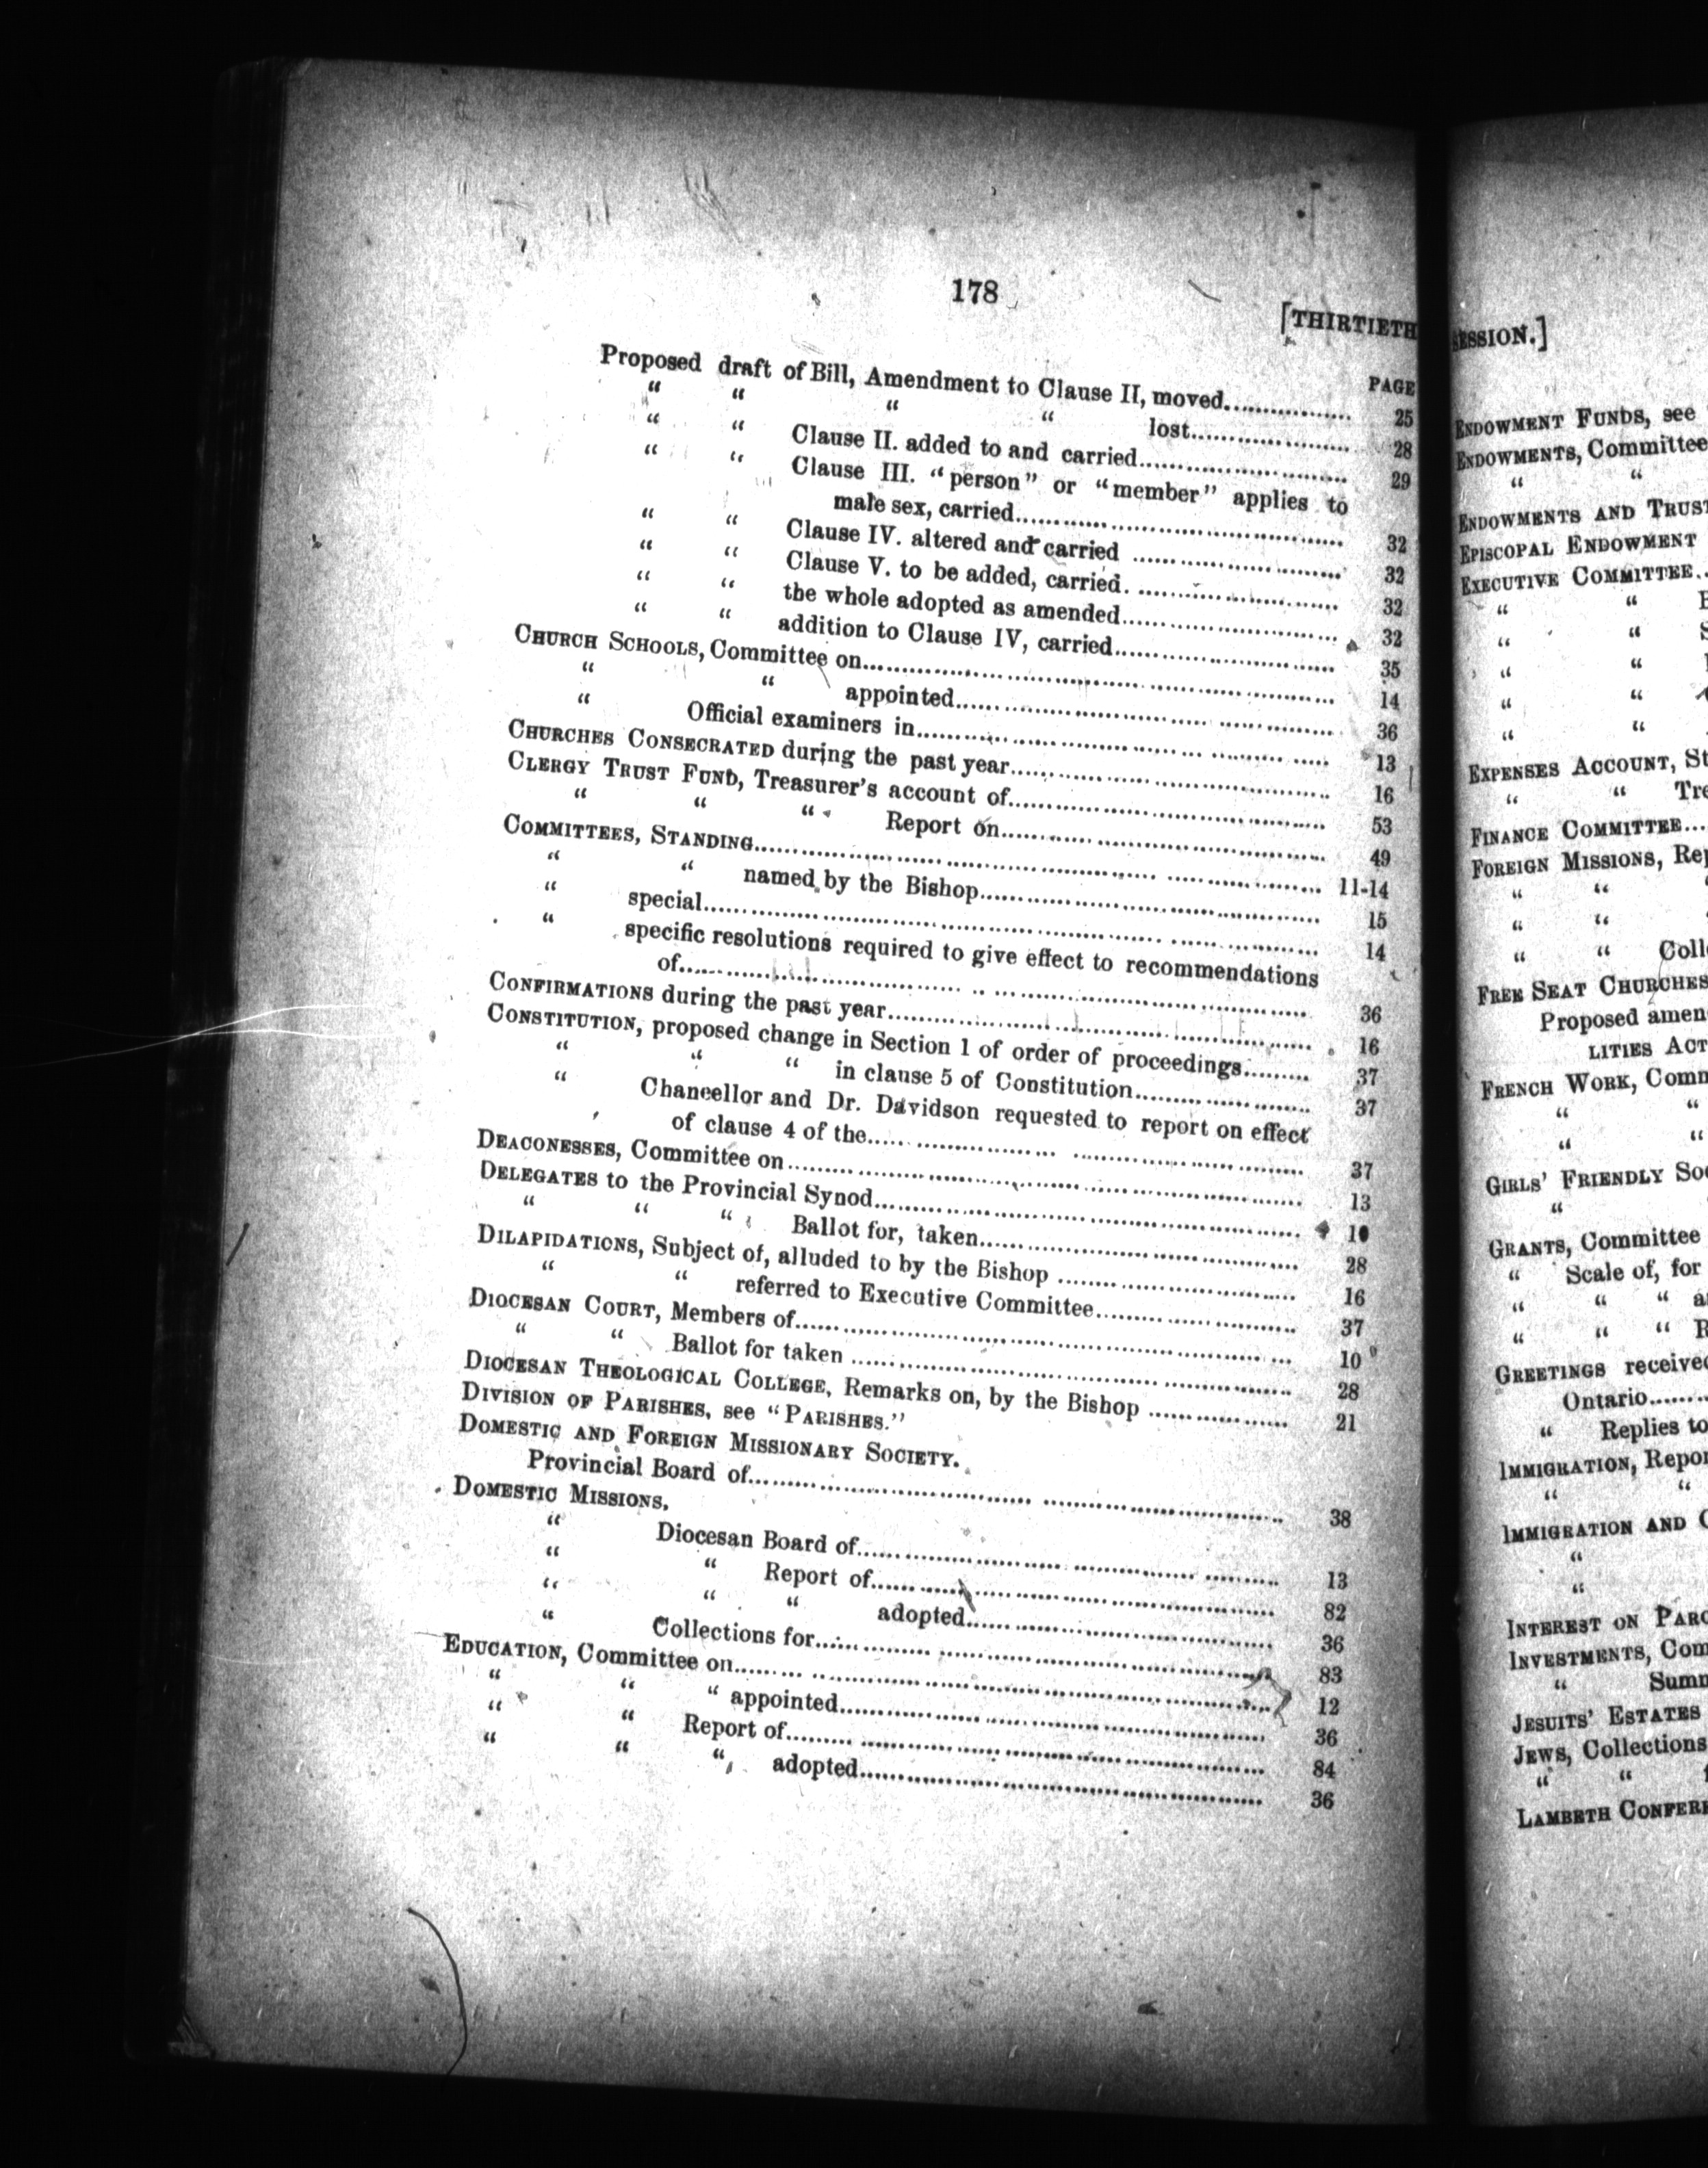 178
[THIRTIETH
PAGE
Proposed draft of Bill, Amendment to Clause II, moved.................. 25
“ “ “ “ lost...................... 28
“ “ Clause II. added to and carried.............................. 29
“ “ Clause III. “person” or “member” applies to
male sex, carried.............................................. 32
“ “ Clause IV. altered and carried .............................. 32
“ “ Clause V. to be added, carried. ............................ 32
“ “ the whole adopted as amended.............................. 32
“ “ addition to Clause IV, carried.............................. 35
CHURCH SCHOOLS, Committee on.............................................................. 14
“ “ appointed.................................................. 36
“ Official examiners in...................................................... 13
CHURCHES CONSECRATED during the past year.......................................... 16
CLERGY TRUST FUND, Treasurer's account of.......................................... 53
“ “ “ Report on.......................................... 49
COMMITTEES, STANDING.......................................................................... 11-14
“ “ named by the Bishop............................................ 15
“ special.............................................................................. 14
“ specific resolutions required to give effect to recommendations
of.............................................................................. 36
CONFIRMATIONS during the past year...................................................... 16
CONSTITUTION, proposed change in Section 1 of order of proceedings......... 37
“ “ “ in clause 5 of Constitution........................ 37
“ Chancellor and Dr. Davidson requested to report on effect
of clause 4 of the...................................................... 37
DEACONESSES, Committee on.................................................................. 13
DELEGATES to the Provincial Synod........................................................ 10
“ “ “ Ballot for, taken.......................................... 28
DILAPIDATIONS, Subject of, alluded to by the Bishop .............................. 16
“ “ referred to Executive Committee.......................... 37
DIOCESAN COURT, Members of.................................................................. 10
“ “ Ballot for taken ...................................................... 28
DIOCESAN THEOLOGICAL COLLEGE, Remarks on, by the Bishop .................. 21
DIVISION OF PARISHES, see “PARISHES.”
DOMESTIC AND FOREIGN MISSIONARY SOCIETY.
Provincial Board of.................................................................. 38
DOMESTIC MISSIONS.
“ Diocesan Board of...................................................... 13
“ “ Report of.................................................. 82
“ “ “ adopted........................................ 36
“ Collections for............................................................ 83
EDUCATION, Committee on...................................................................... 12
“ “ “ appointed........................................................ 36
“ “ Report of............................................................ 84
“ “ “ adopted...................................................... 36
SESSION.]
ENDOWMENT FUNDS, see
ENDOWMENTS, Committee
“ “
ENDOWMENTS AND TRUST
EPISCOPAL ENDOWMENT
EXECUTIVE COMMITTEE..
“ “
“ “
“ “
“ “
“ “
EXPENSES ACCOUNT, St
“ “ Tre
FINANCE COMMITTEE...
FOREIGN MISSIONS, Rep
“ “
“ “
“ “ Coll
FREE SEAT CHURCHES
Proposed amen
LITIES ACT
FRENCH WORK, Comm
“ “
“ “
GIRLS' FRIENDLY Soc
“
GRANTS, Committee
“ Scale of, for
“ “ “ a
“ “ “ R
GREETINGS received
Ontario.......
“ Replies to
IMMIGRATION, Repor
“ “
IMMIGRATION AND C
“
“
INTEREST ON PARO
INVESTMENTS, Com
“ Summ
JESUITS' ESTATES
JEWS, Collections
“ “ f
LAMBETH CONFERE